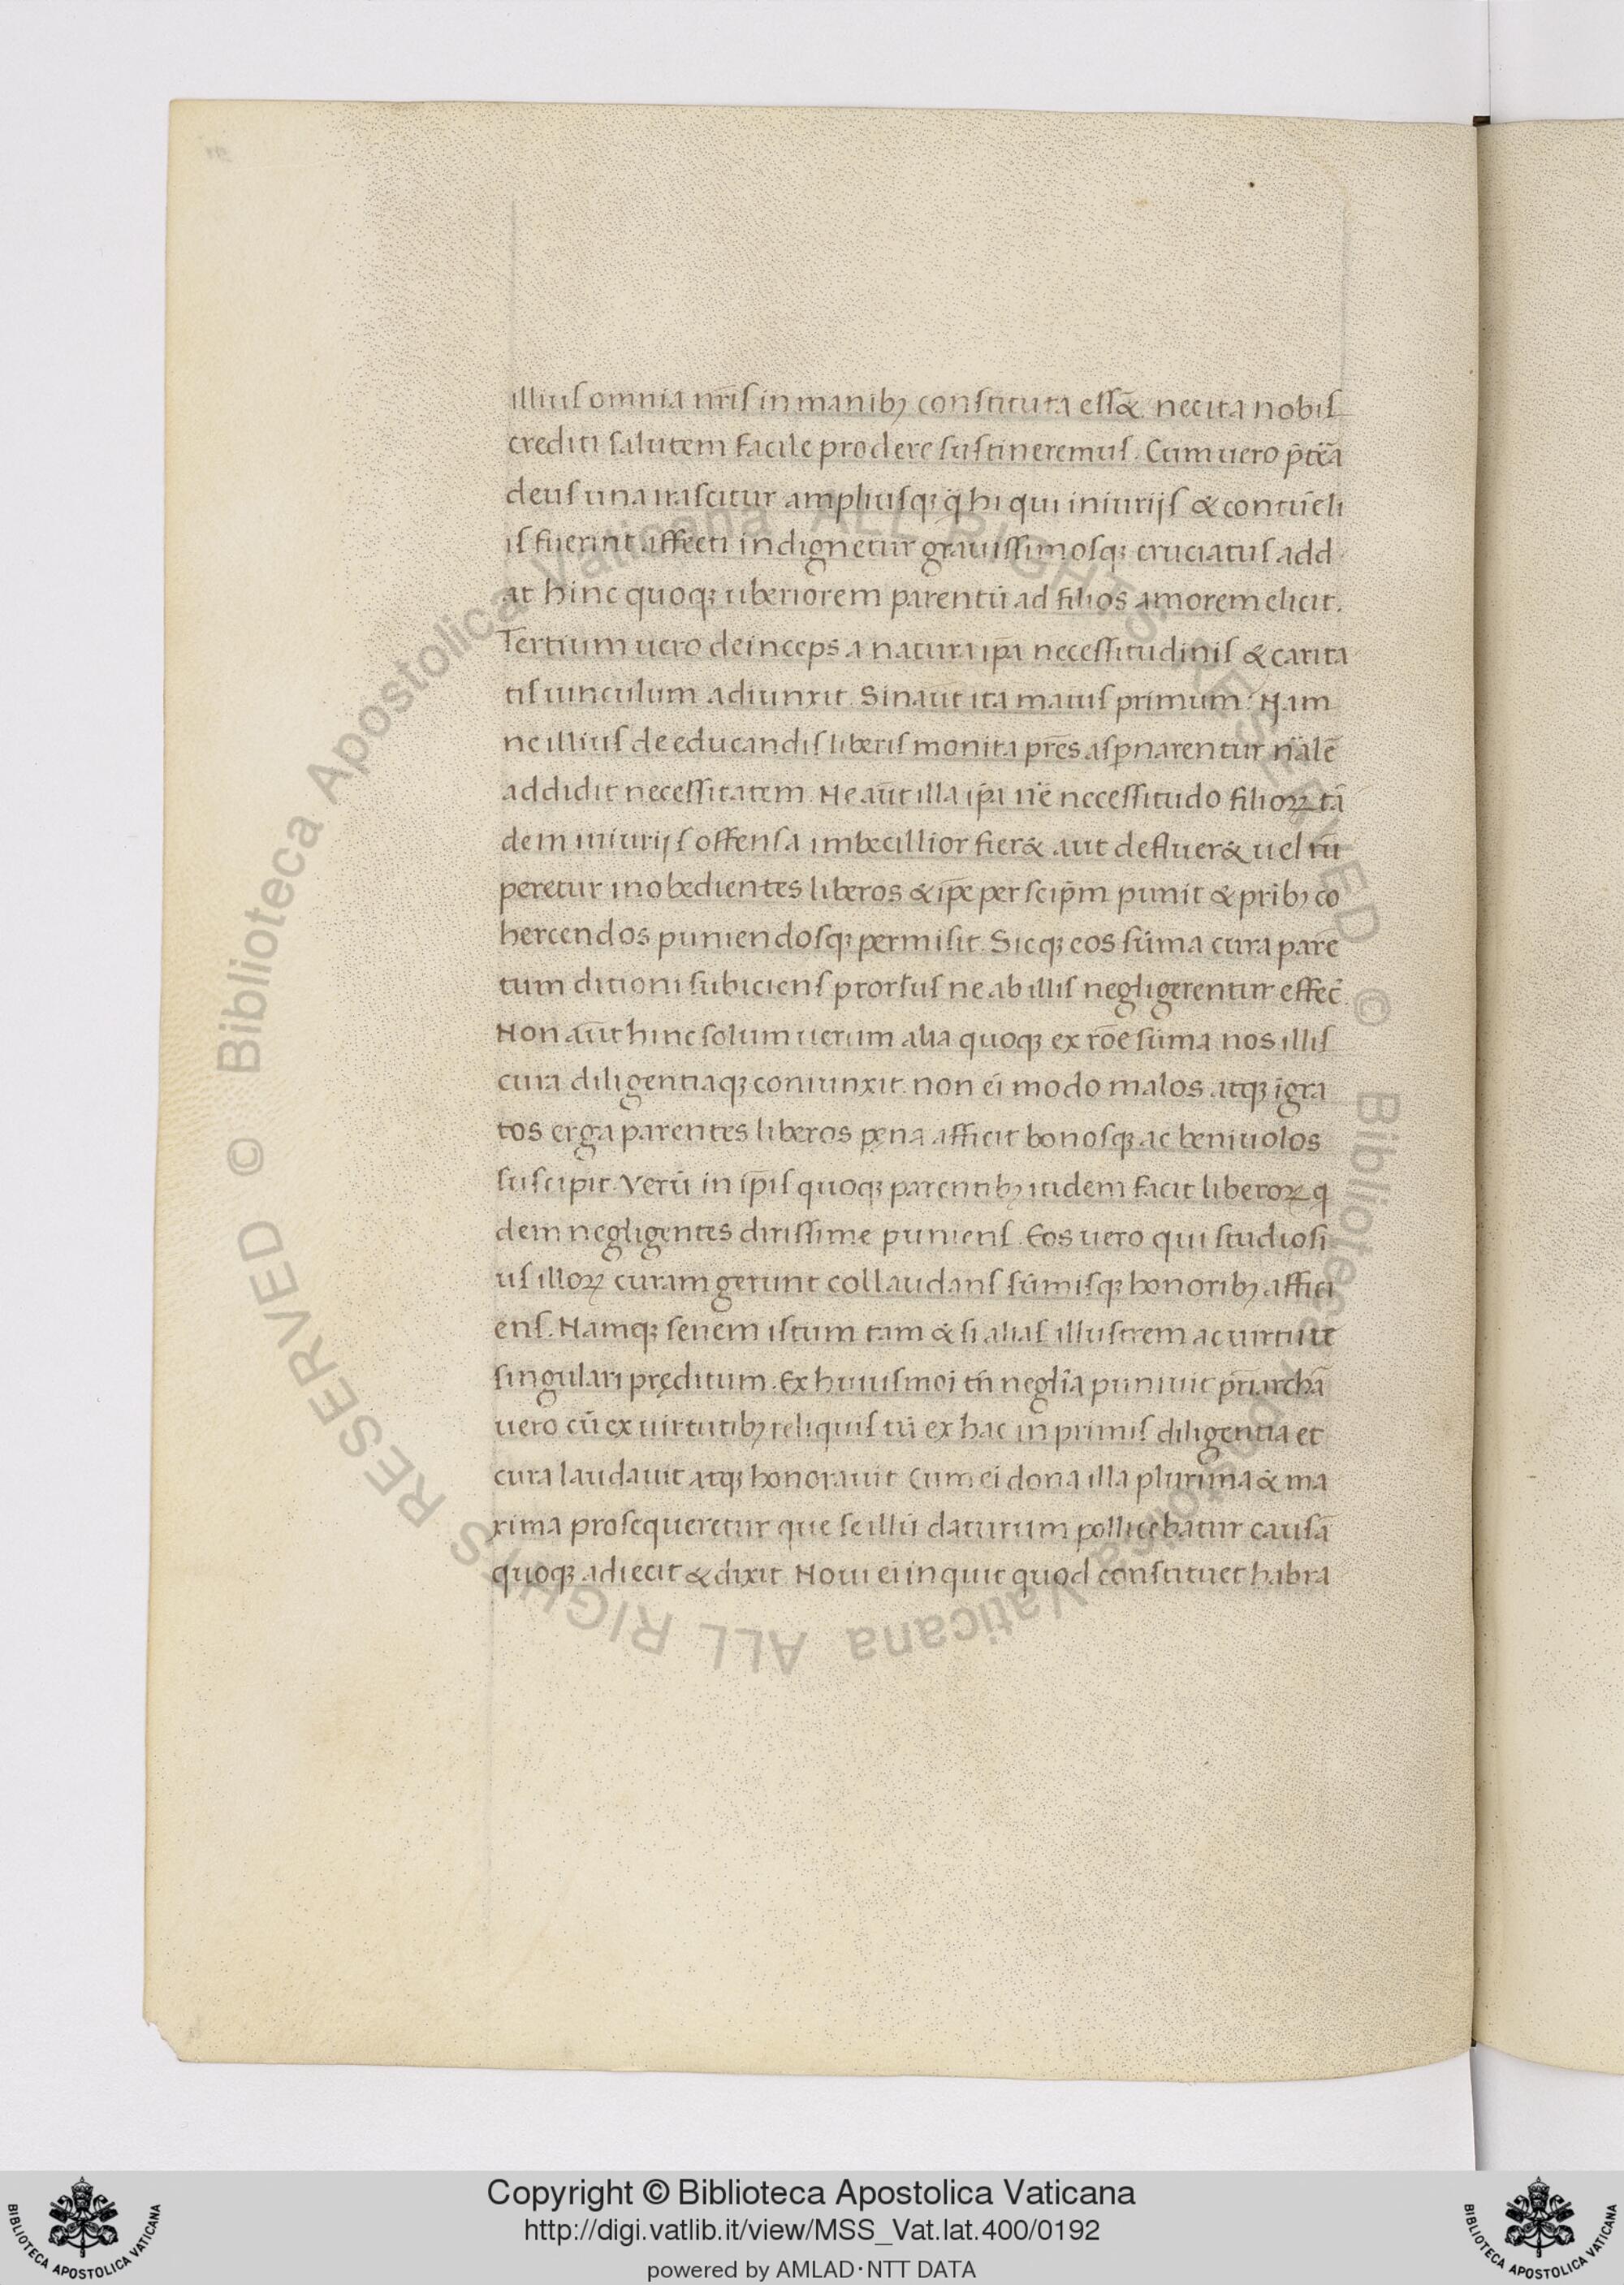 illiuſ omnia nr̄iſ in manibꝫ conſtituta eſſ&. nec ita nobiſ
crediti ſalutem facile prodere ſuſtineremuſ. Cum uero p̄tēa
deuſ una iraſcitur ampliuſqꝫ q̄ hi qui iniurijſ & contūeli
iſ fuerint affecti indignetur grauiſſimoſqꝫ cruciatuſ add
at hinc quoqꝫ uberiorem parentū ad filios amorem elicit.
Tertium uero deinceps a natura ip̄a neceſſitudiniſ & carita
tiſ uinculum adiunxit. Sin aūt ita mauiſ primum. Nam
ne illiuſ de educandiſ liberiſ monita pr̄es aſp̱narentur n̄ālē
addidit neceſſitatem. Ne aūt illa ip̄a n̄ē neceſſitudo filioꝝ tā
dem iniurijſ offenſa imbecillior fier& aut defluer& uel rū
peretur inobedientes liberos & ip̄e per ſeip̄m punit & prībꝫ co
hercendos puniendoſqꝫ permiſit. Sicqꝫ eos ſūma cura parē
tum ditioni ſubicienſ prorſuſ ne ab illiſ negligerentur effec̄.
Non aūt hinc ſolum uerum alia quoqꝫ ex rōe ſūma nos illiſ
cura diligentiaqꝫ coniunxit. non eī modo malos atqꝫ īgra
tos erga parentes liberos pęna afficit bonoſqꝫ ac beniuolos
ſuſcipit. Verū in ip̄iſ quoqꝫ parentibꝫ itidem facit liberoꝝ q
dem negligentes diriſſime punienſ. Eos uero qui ſtudioſi
uſ illoꝝ curam gerunt collaudanſ ſūmiſqꝫ honoribꝫ affici
enſ. Namqꝫ ſenem iſtum tam & ſi aliaſ illuſtrem ac uirtute
ſingulari pręditum. Ex huiuſmoi tn̄ neglīa puniuit pr̄iarchā
uero cū ex uirtutibꝫ reliquiſ tū ex hac in primiſ diligentia et
cura laudauit atqꝫ honorauit. Cum ei dona illa plurima & ma
xima proſequeretur que ſe illū daturum pollicebatur cauſā
quoqꝫ adiecit & dixit. Noui eī inquit quod conſtituet habra
Copyright © Biblioteca Apostolica Vaticana
http://digi.vatlib.it/view/MSS_Vat.lat.400/0192
powered by AMLAD·NTT DATA